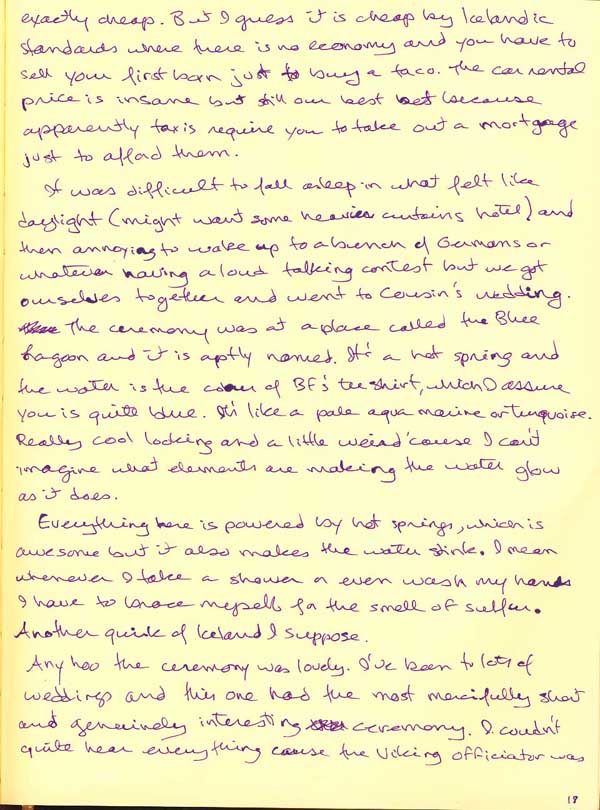 exactly cheap. But I guess it is cheap by Icelandic
standards where there is no economy and you have to
sell your first born just to buy a taco. The car rental
price is insane but still our best bet because
apparently taxis require you to take out a mortgage
just to afford them.
It was difficult to fall asleep in what felt like
daylight (might want some heavier curtains hotel) and
then annoying to wake up to a bunch of Germans or
whatever having a loud talking contest but we got
ourselves together and went to Cousin's wedding.
The ceremony was at a place called the Blue
Lagoon and it is aptly named. It's a hot spring and
the water is the colour of BF's tee shirt, which I assure
you is quite blue. It's like a pale aqua marine or turquoise.
Really cool looking and a little weird 'cause I can't
imagine what elements are making the water glow
as it does.
Everything here is powered by hot springs, which is
awesome but it also makes the water stink. I mean
whenever I take a shower or even wash my hands
I have to brace myself for the smell of sulfur.
Another quirk of Iceland I suppose.
Any hoo the ceremony was lovely. I've been to lots of
weddings and this one had the most mercifully short
and genuinely interesting ceremony. I couldn't
quite hear everything cause the Viking officiator was
18